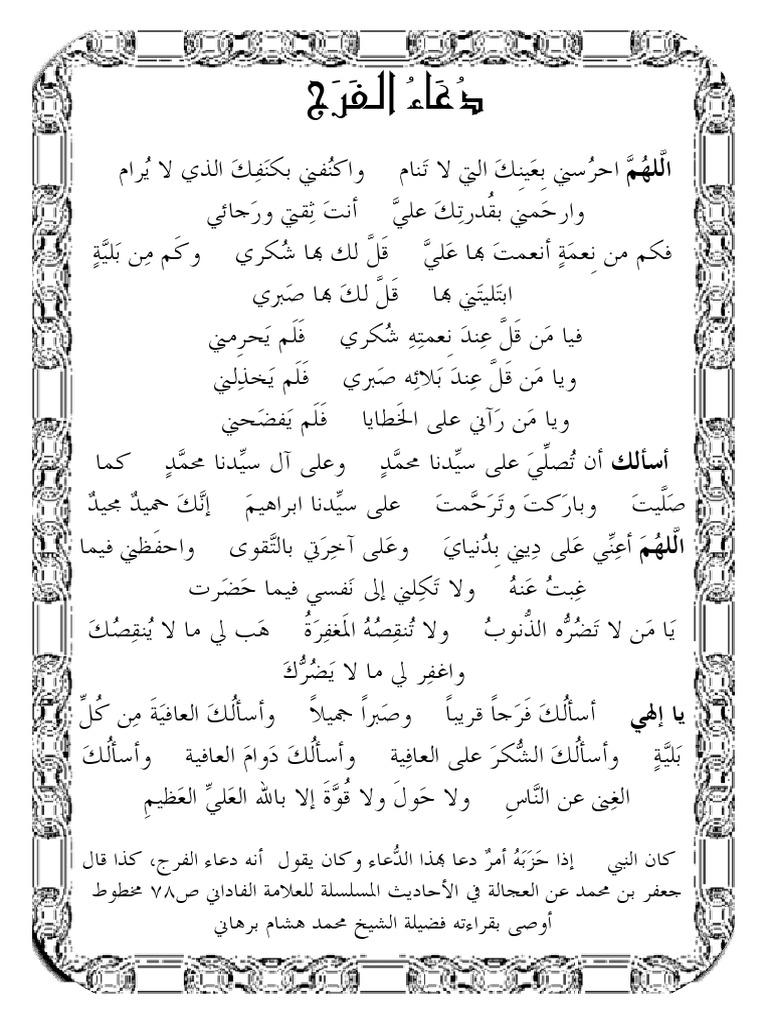 دُعَاءُ الفَرَج
الَّلهُمَّ احرُسني بِعَينِكَ التي لا تَنام واكنُفني بكنَفِكَ الذي لا يُرام
وارحَمني بقُدرتِكَ عليَّ أنتَ ثِقتي ورَجائي
فكم من نِعمَةٍ أنعمتَ بها عَليَّ قَلَّ لك بها شُكري وكَم مِن بَليَّةٍ
ابتَليتَني بها قَلَّ لكَ بها صَبري
فيا مَن قَلَّ عِندَ نِعمتِهِ شُكري فَلَم يَحرِمني
ويا مَن قَلَّ عِندَ بَلائِه صَبري فَلَم يَخذِلني
ويا مَن رَآني على الخَطايا فَلَم يَفضَحني
أسألك أن تُصلِّيَ على سيِّدنا محمَّدٍ وعلى آل سيِّدنا محمَّدٍ كما
صَلَّيتَ وبارَكتَ وتَرَحَّمتَ على سيِّدنا ابراهيمَ إنَّكَ حميدٌ مجيدٌ
الَّلهُمَ أعِنِّي عَلى دِيني بِدُنيايَ وعَلى آخِرَتي بالتَّقوى واحفَظني فيما
غِبتُ عَنهُ ولا تَكِلني إلى نَفسي فيما حَضَرت
يَا مَن لا تَضُرُّه الذُّنوبُ ولا تُنقِصُهُ المَغفِرَةُ هَب لي ما لا يُنقِصُكَ
واغفِر لي ما لا يَضُرُّكَ
يا إلهي أسألُكَ فَرَجاً قريباً وصَبراً جميلاً وأسألُكَ العافيَةَ مِن كُلِّ
بَليَّةٍ وأسألُكَ الشُّكرَ على العافِية وأسألُكَ دَوامَ العافية وأسألُكَ
الغِنى عن النَّاسِ ولا حَولَ ولا قُوَّةَ إلا بالله العَليِّ العَظيمِ
كان النبي إذا حَزَبَهُ أمرٌ دعا بهذا الدُّعاء وكان يقول أنه دعاء الفرج، كذا قال
جعفر بن محمد عن العجالة في الأحاديث المسلسلة للعلامة الفاداني ص٧٨ مخطوط
أوصى بقراءته فضيلة الشيخ محمد هشام برهاني